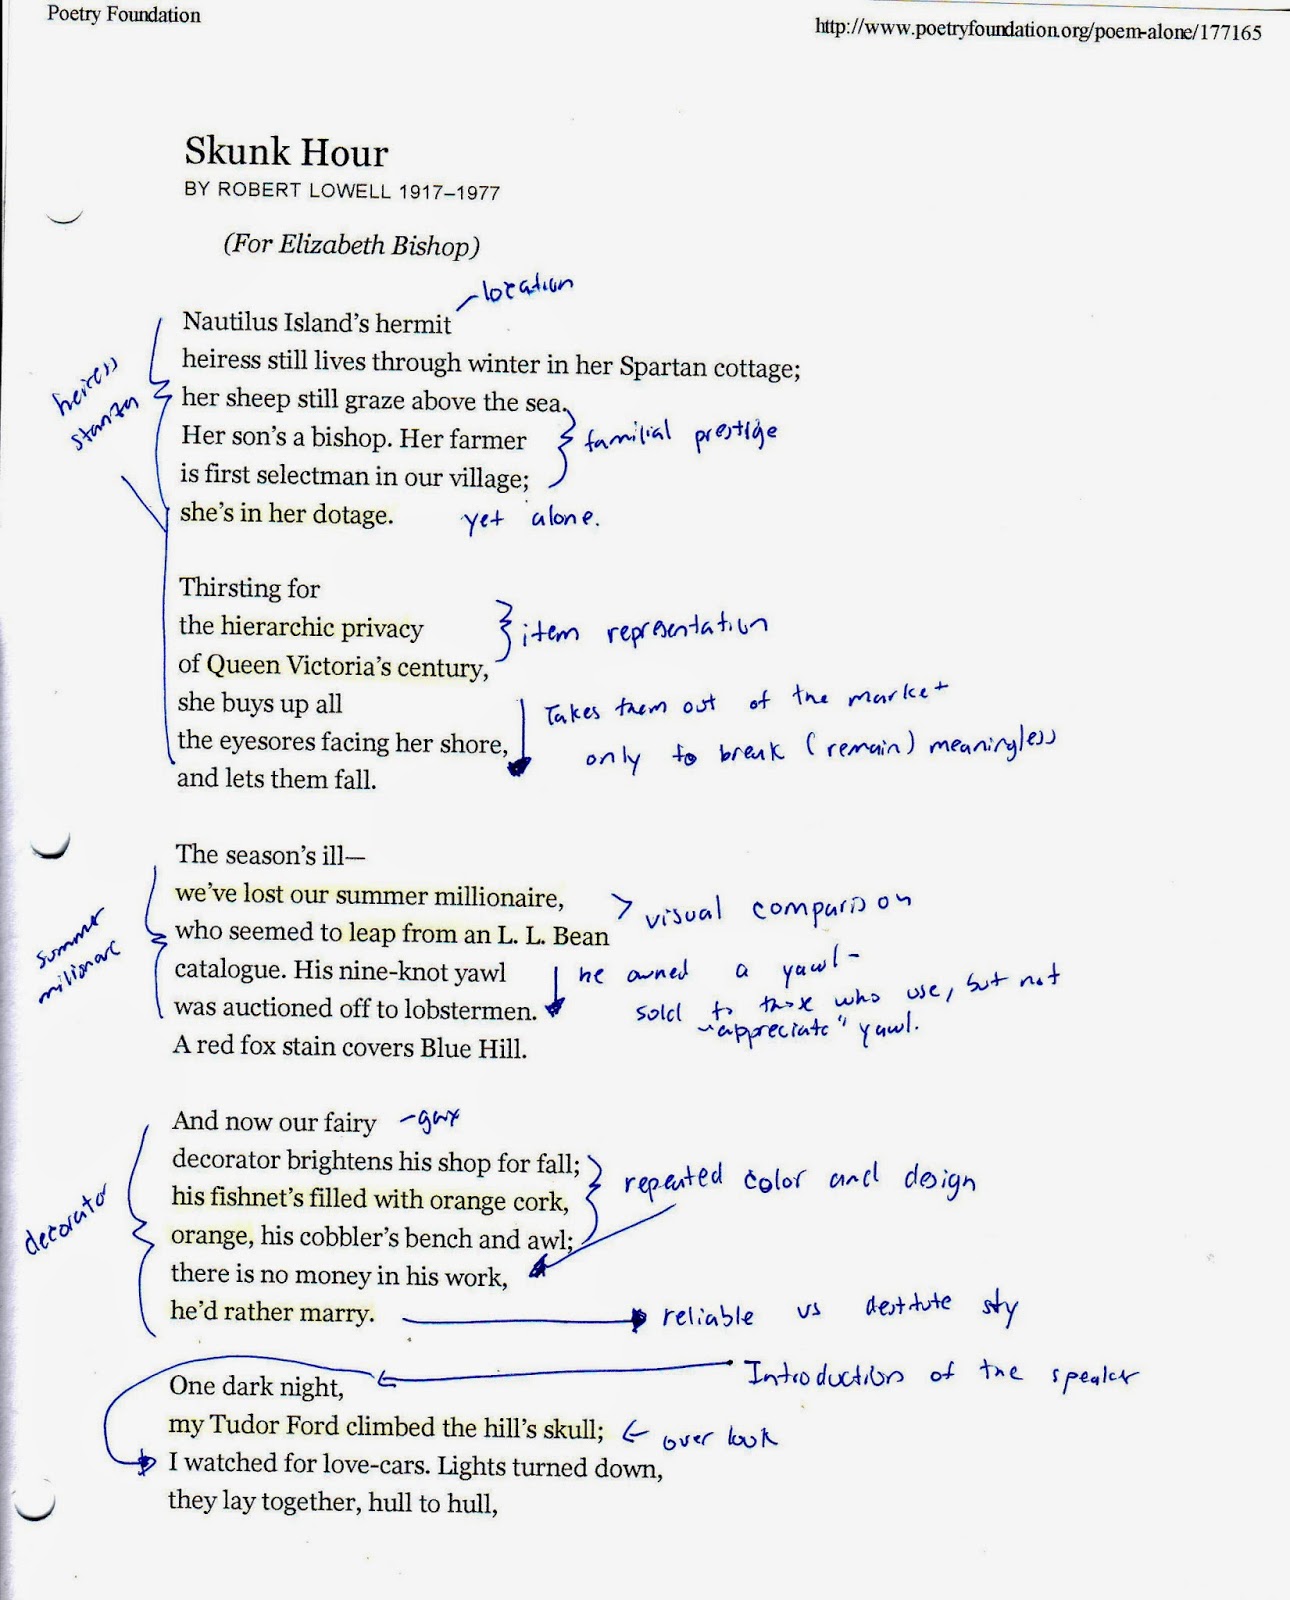 Poetry Foundation
http://www.poetryfoundation.org/poem-alone/177165
Skunk Hour
BY ROBERT LOWELL 1917–1977
(For Elizabeth Bishop)
-location
Nautilus Island's hermit
heiress still lives through winter in her Spartan cottage;
heiress
stanza
her sheep still graze above the sea.
Her son's a bishop. Her farmer
familial prestige
is first selectman in our village;
she's in her dotage.
yet alone.
Thirsting for
the hierarchic privacy
item representation
of Queen Victoria's century,
she buys up all
Takes them out of the market
the eyesores facing her shore,
only to break (remain) meaningless
and lets them fall.
The season's ill—
we've lost our summer millionaire,
visual comparison
who seemed to leap from an L. L. Bean
summer
milionare
catalogue. His nine-knot yawl
he owned a yawl-
was auctioned off to lobstermen.
sold to those who use, but not
"appreciate" yawl.
A red fox stain covers Blue Hill.
And now our fairy
-gay
decorator brightens his shop for fall;
repeated color and design
his fishnet's filled with orange cork,
decorator
orange, his cobbler's bench and awl;
there is no money in his work,
he'd rather marry.
reliable vs destitute
Introduction of the speaker
One dark night,
my Tudor Ford climbed the hill's skull;
over look
I watched for love-cars. Lights turned down,
they lay together, hull to hull,